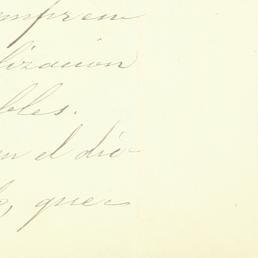 mpren
lización
bles.
en el dic-
que